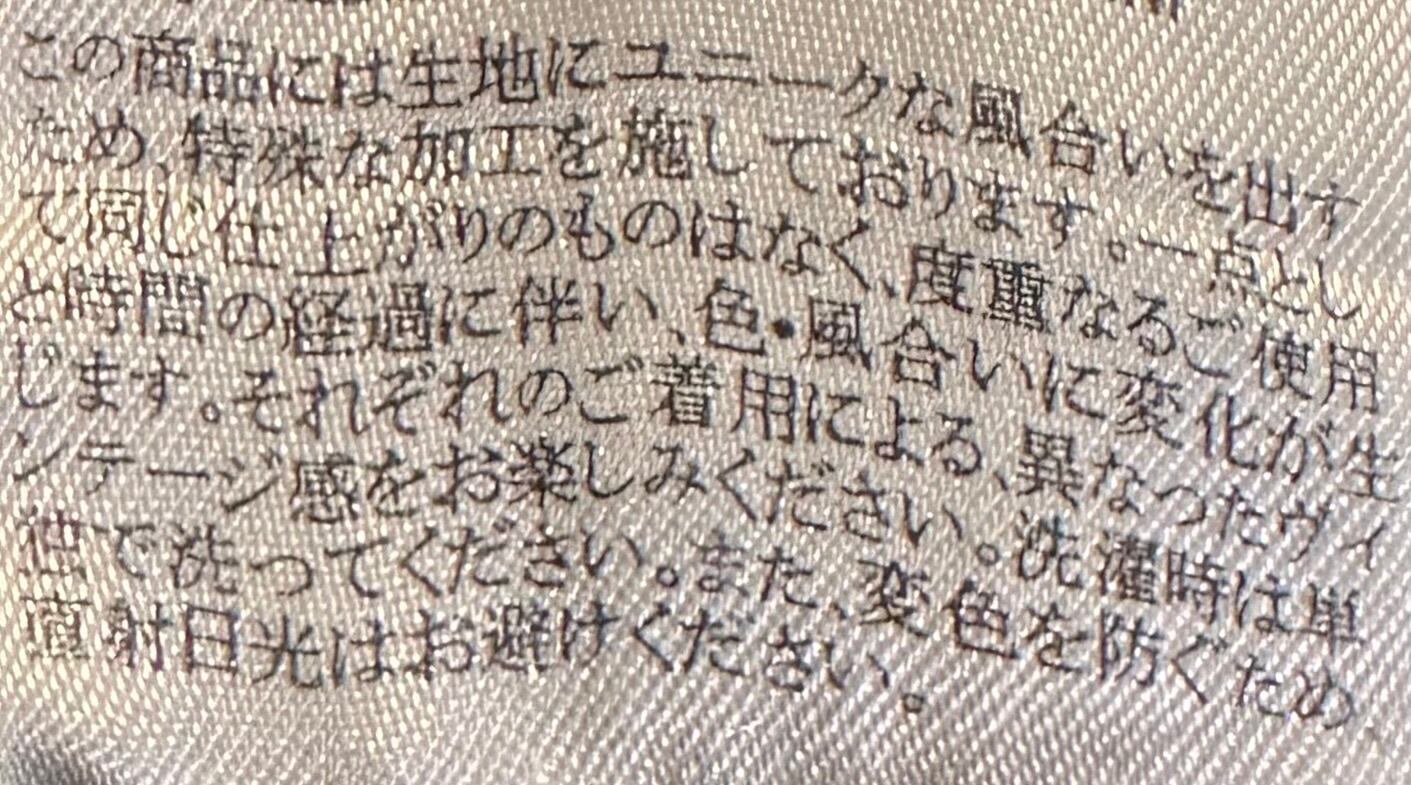 この商品には生地にユニークな風合いを出す
ため、特殊な加工を施しております。一点とし
て同じ仕上がりのものはなく、度重なるご使用
と時間の経過に伴い、色・風合いに変化が生
じます。それぞれのご着用による、異なったヴィ
ンテージ感をお楽しみください。洗濯時は単
他で洗ってください。また、変色を防ぐため
直射日光はお避けください。